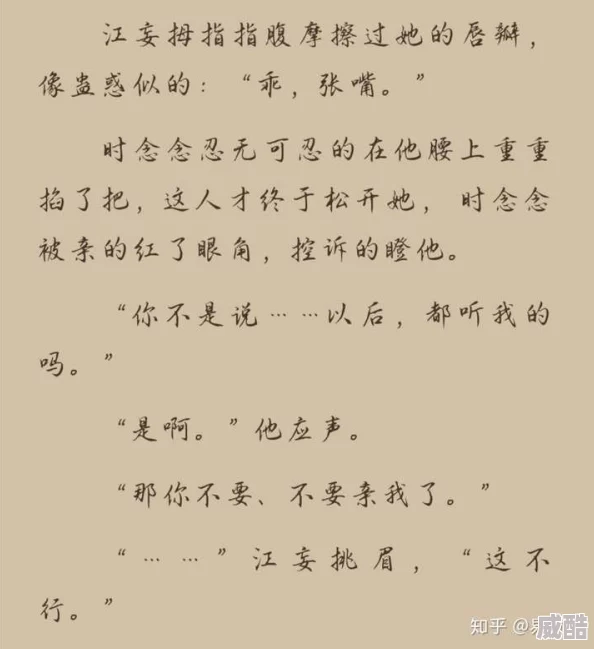 江妄拇指指腹摩擦过她的唇瓣，
像蛊惑似的：“乖，张嘴。”
时念念忍无可忍的在他腰上重重
掐了把，这人才终于松开她，时念念
被亲的红了眼角，控诉的瞪他。
“你不是说……以后，都听我的
吗。”
“是啊。”他应声。
“那你不要、不要亲我了。”
“……”江妄挑眉，“这不
行。”
知乎 @
威酷